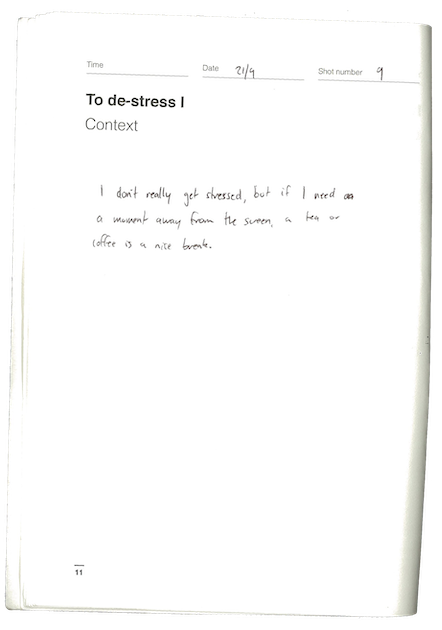 Time
Date 21/9
Shot number 9
To de-stress I
Context
I don't really get stressed, but if I need
a moment away from the screen, a tea or
coffee is a nice break.
11